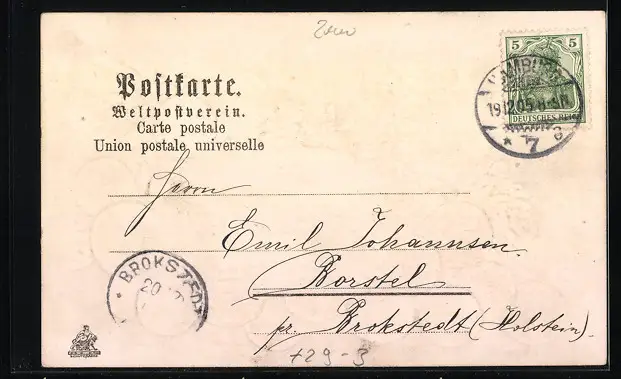 5 5
DEUTSCHES REICH
HAMBURG
19.12.05. 8-9 N
* 7
Postkarte.
Weltpostverein.
Carte postale
Union postale universelle
Herrn
Emil Johannsen.
Borstel
pr. Brokstedt (Holstein).
BROKSTEDT
20
+29-3